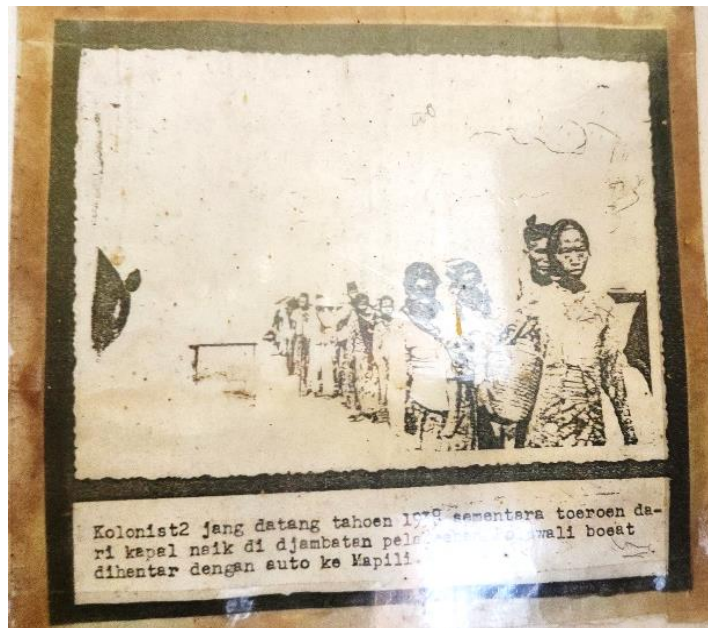 Kolonist2 jang datang tahoen 1939 sementara toeroen da-
ri kapal naik di djambatan boeat
dihentar dengan auto ke Mapili.